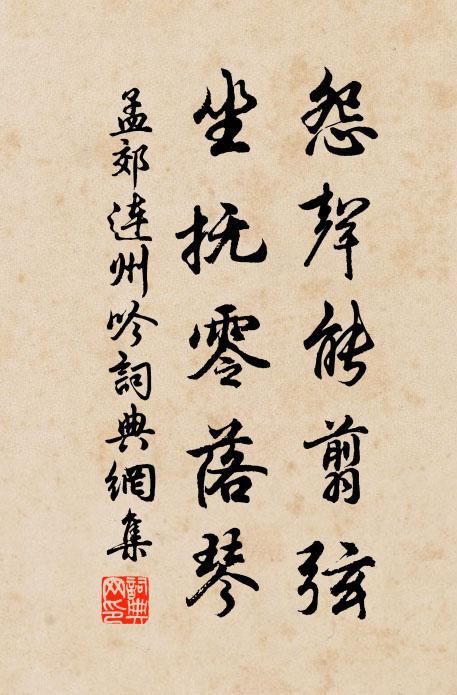 怨聲能翦弦
坐抚零落琴
孟郊连州吟詞典網集
詞典网印